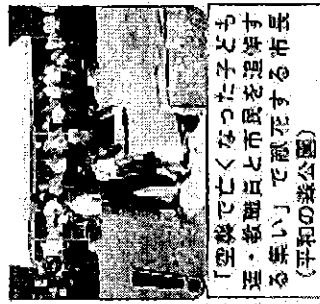 「空襲で亡くなった子ども
達・教職員と市民を追悼す
る集い」で献花する市長
(平和の森公園)